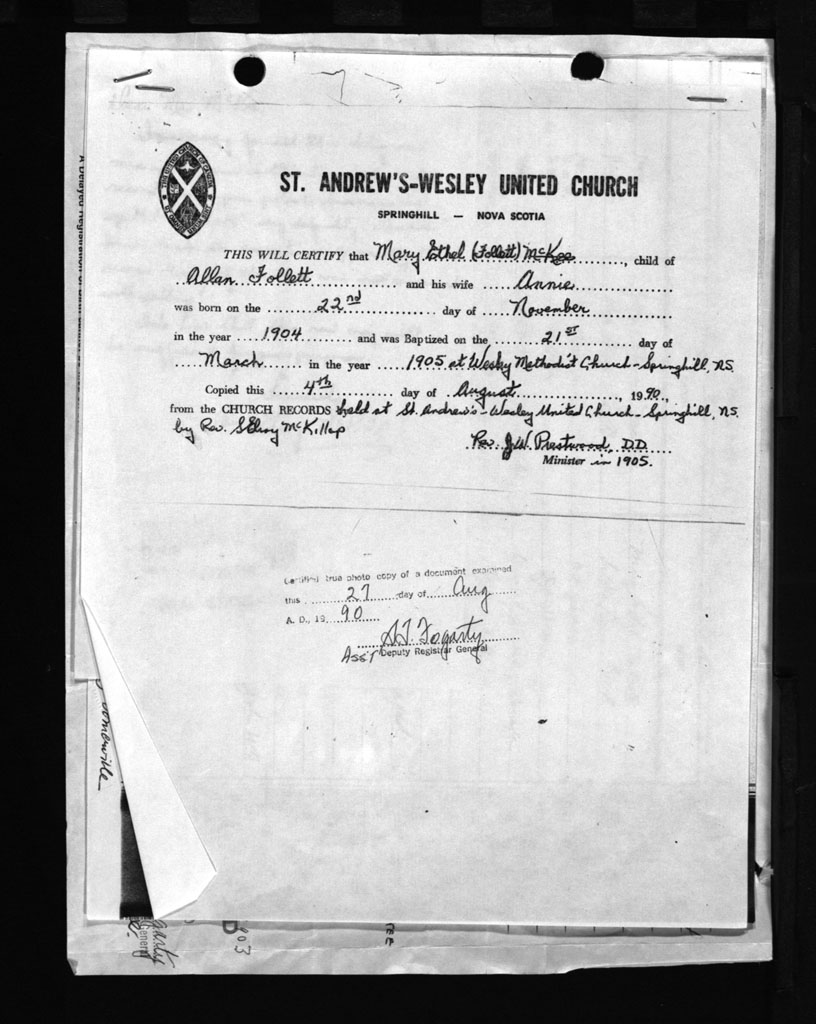 ST. ANDREW'S-WESLEY UNITED CHURCH
SPRINGHILL — NOVA SCOTIA
THIS WILL CERTIFY that Mary Ethel (Follett) McKee, child of
Allan Follett and his wife Annie
was born on the 22nd day of November
in the year 1904 and was Baptized on the 21st day of
March in the year 1905 at Wesley Methodist Church - Springhill, NS.
Copied this 4th day of August, 1990.,
from the CHURCH RECORDS held at St. Andrew's - Wesley United Church - Springhill, NS.
by Rev. S Elroy McKillop
Rev. J.W. Prestwood, D.D.
Minister in 1905.
Certified true photo copy of a document examined
this 27 day of Aug
A. D., 19 90
A.T. Fogarty
Ass't Deputy Registrar General
A Delayed Registration of
omerville
903